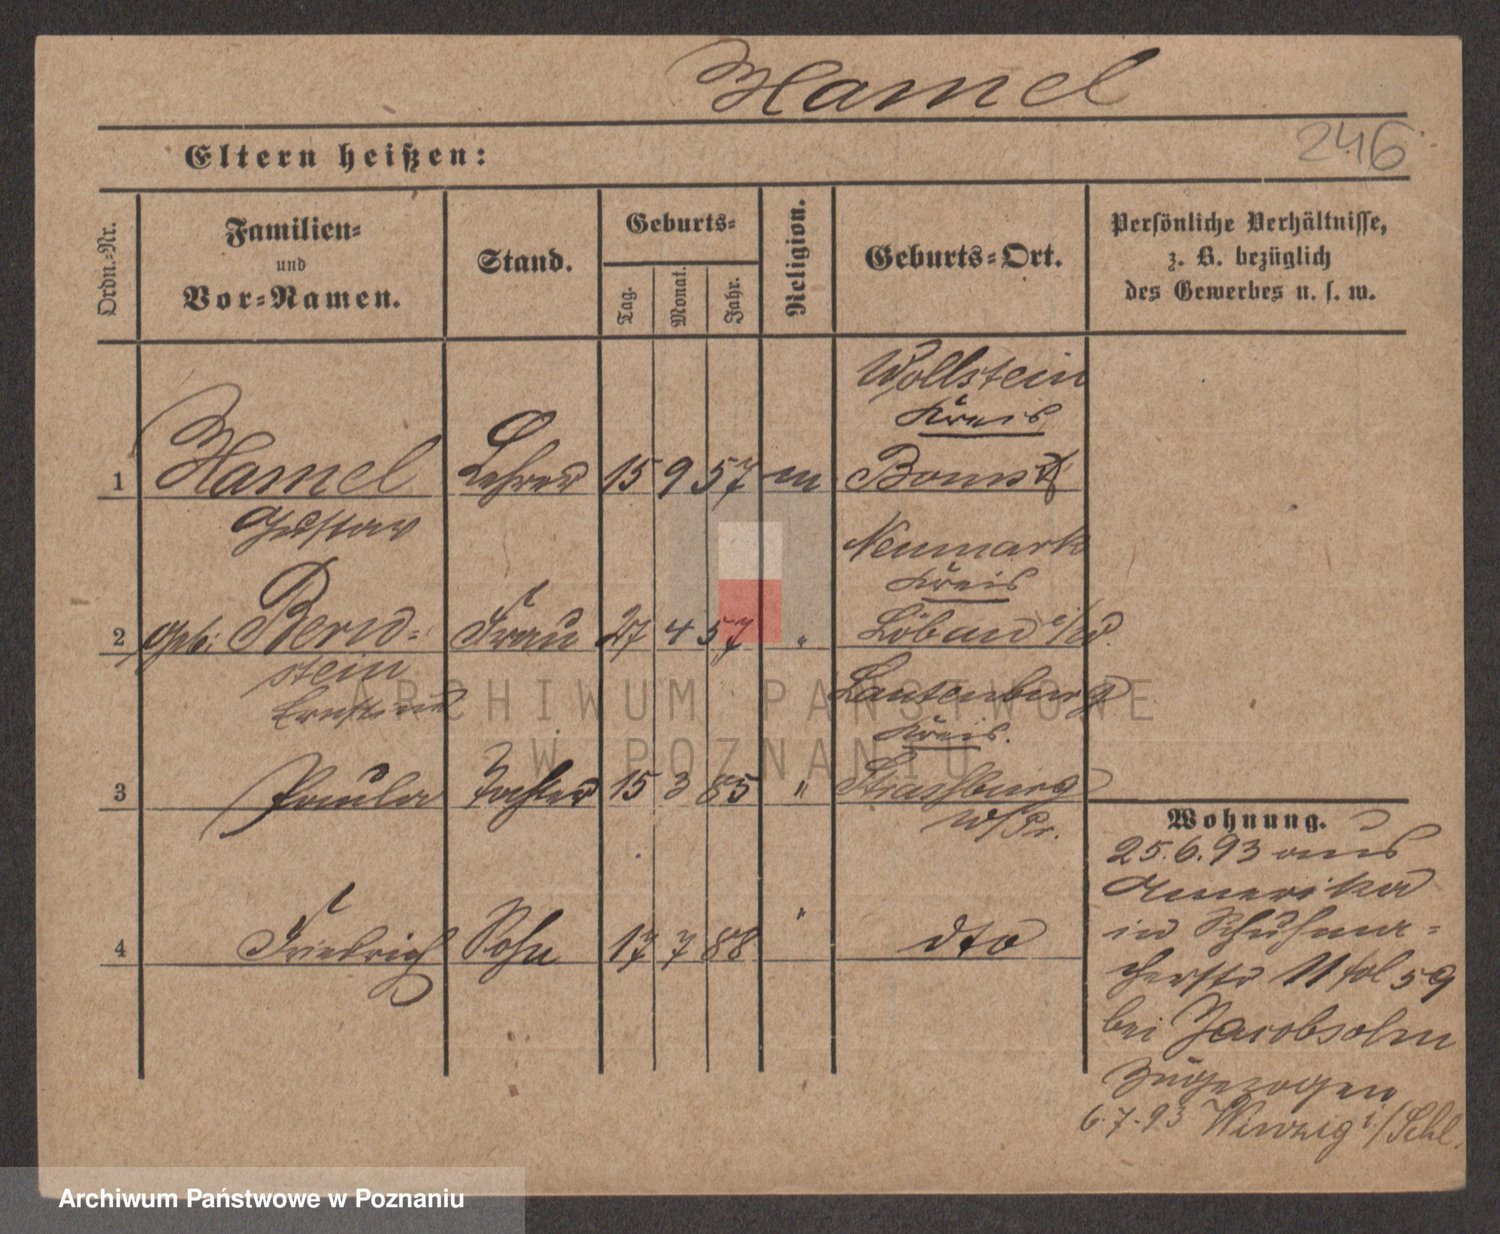 Hamel
246
Eltern heißen:
Ordn.-Nr.
Familien-
und
Vor-Namen.
Stand.
Geburts-
Tag.
Monat.
Jahr.
Religion.
Geburts-Ort.
Persönliche Verhältnisse,
z. B. bezüglich
des Gewerbes u. s. w.
Wollstein
Kreis
1 Hamel Lehrer 15 9 57 m Bomst
Gustav
Neumark
Kreis
2 geb. Bern- Frau 27 4 57 " Löbau
stein
Ernstine
Lautenburg
Kreis.
3 Paula Tochter 15 3 85 " Strasburg
W/Pr.
4 Friedrich Sohn 17 7 88 " dto
Wohnung.
25.6.93 aus
Amerika
in Schuhma-
cherstr 11 fol 59
bei Jacobsohn
zugezogen
6.7.93 i/Schl.
ARCHIWUM PAŃSTWOWE
W POZNANIU
Archiwum Państwowe w Poznaniu